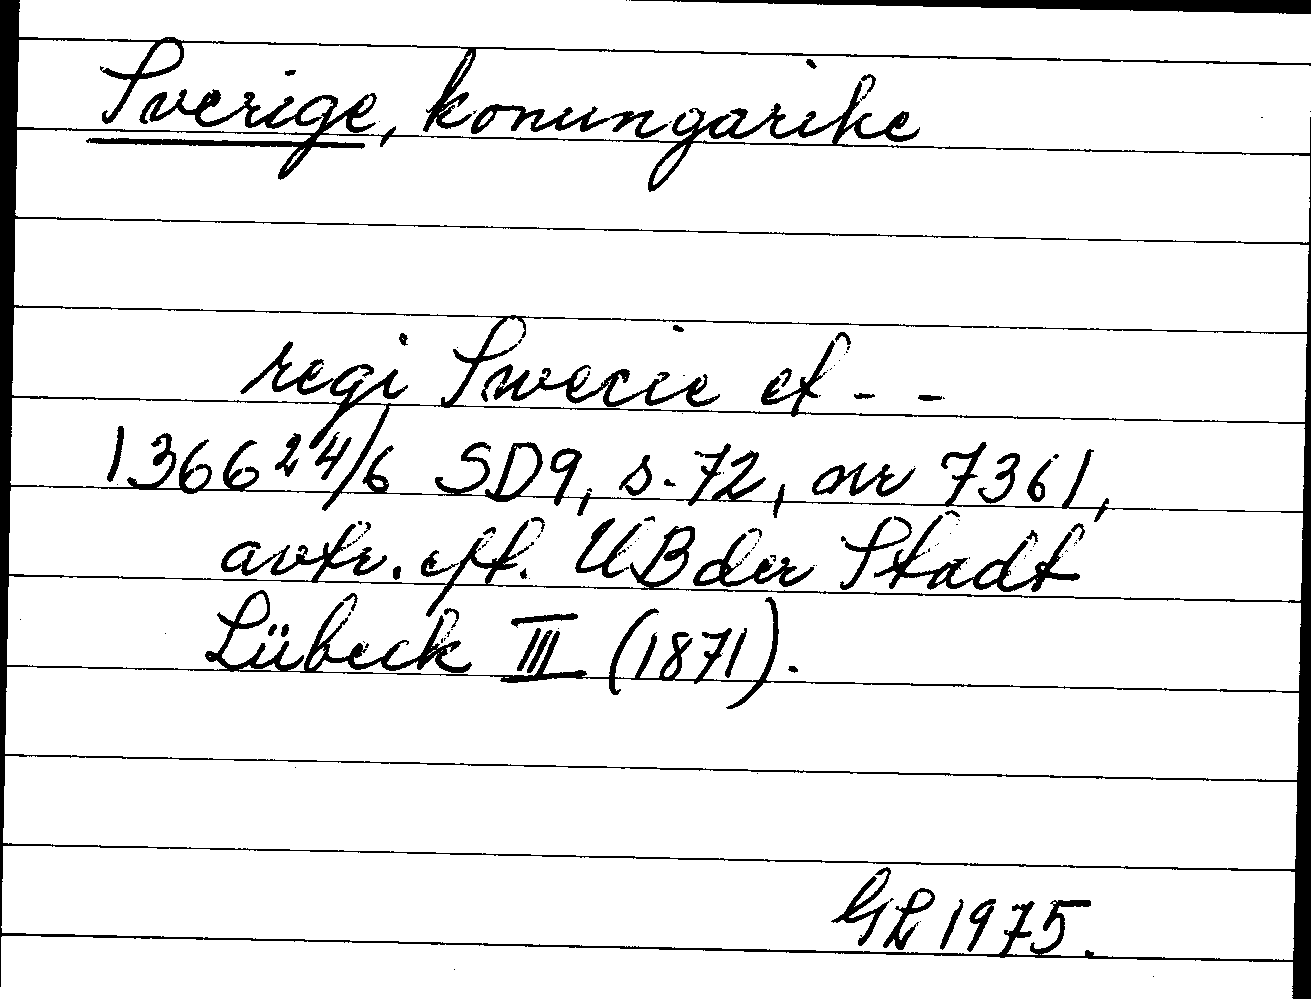 Sverige, konungarike
regi Swecie et - -
1366 24/6 SD9, s. 72, nr 7361,
avtr. eft. UB der Stadt
Lübeck III (1871).
GL 1975.